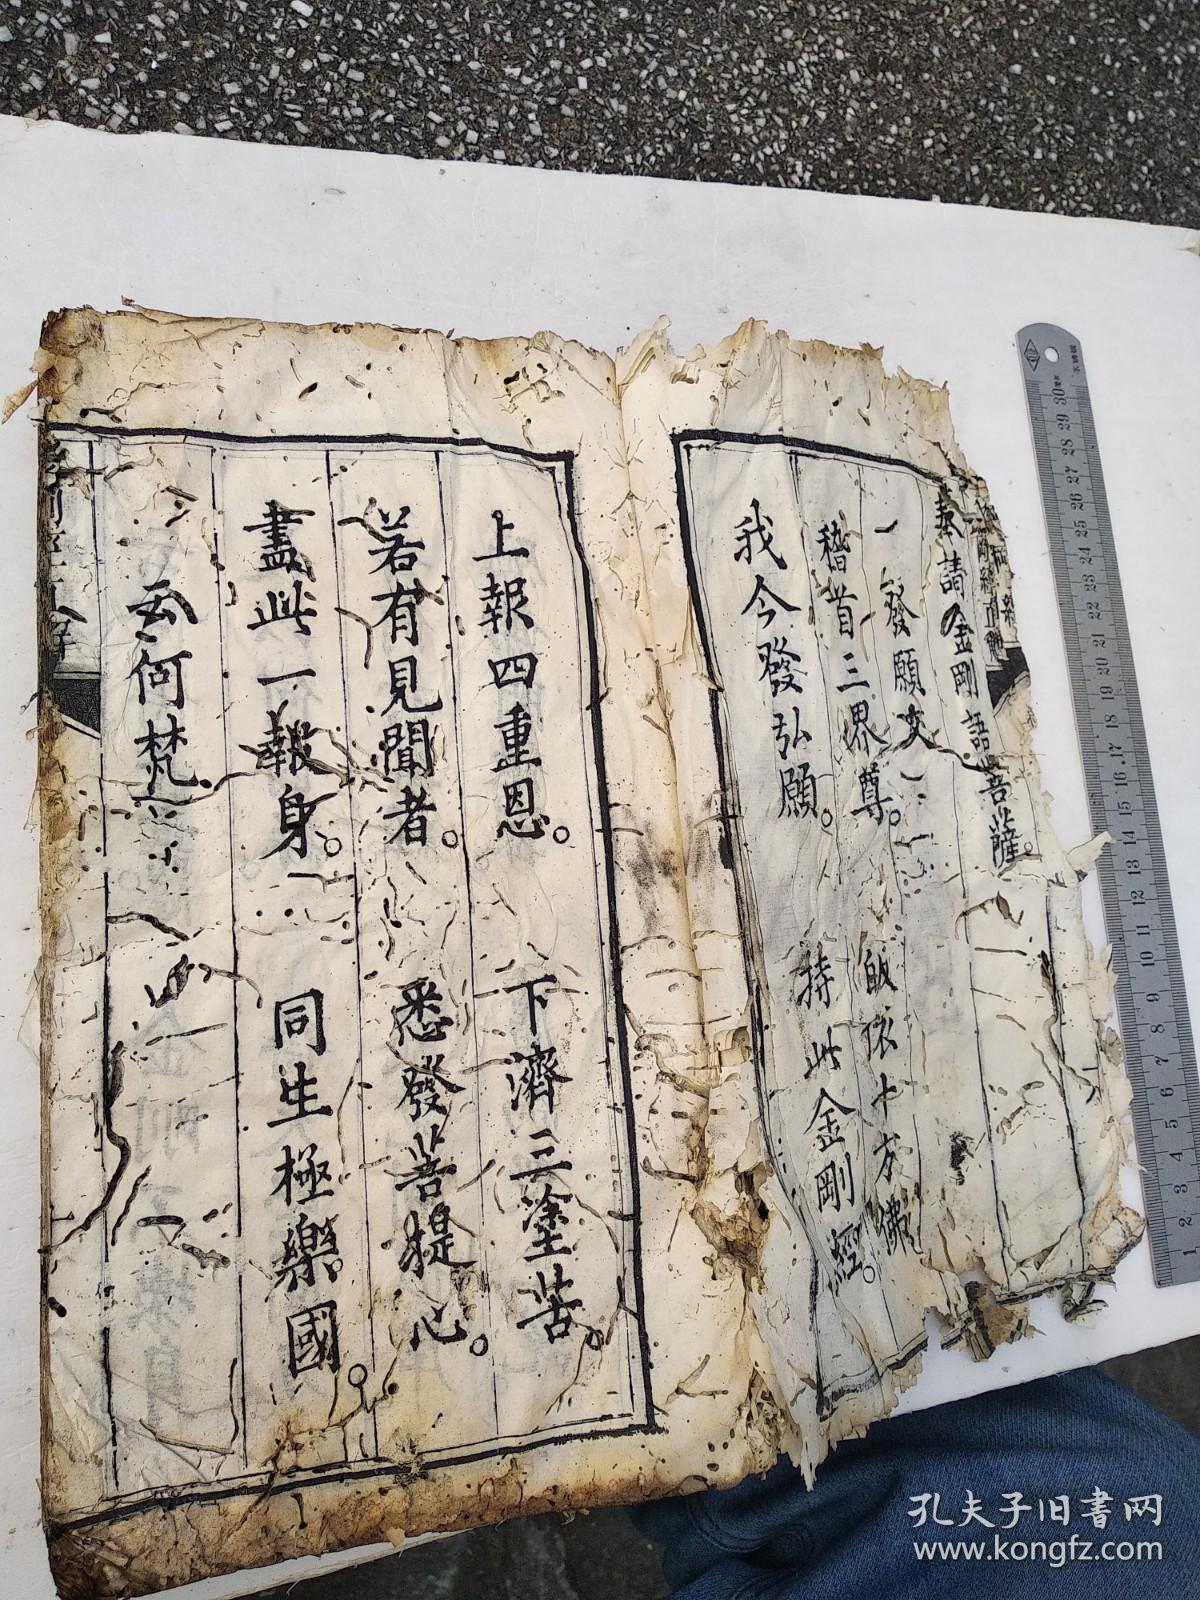 奉請金剛語菩薩。
一發願文
稽首三界尊。 皈依十方佛
我今發弘願。 持此金剛經。
上報四重恩。 下濟三塗苦。
若有見聞者。 悉發菩提心。
盡此一報身。 同生極樂國。
云何梵
孔夫子旧書网
www.kongfz.com